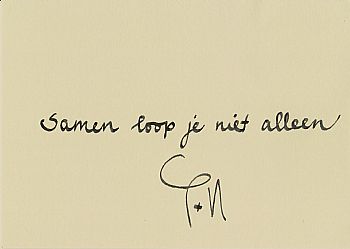 Samen loop je niet alleen
T+N